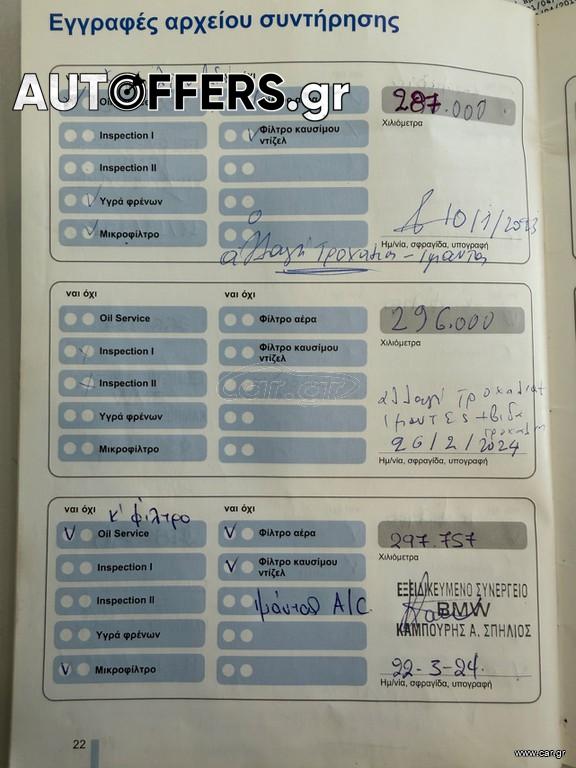 Εγγραφές αρχείου συντήρησης
AUTOFFERS.gr
Oil Service
287.000
Χιλιόμετρα
Inspection I
Φίλτρο καυσίμου ντίζελ
Inspection II
Υγρά φρένων
10/1/2023
Μικροφίλτρο
Ημ/νία, σφραγίδα, υπογραφή
αλλαγή τροχαλια - ιμαντα
ναι όχι
ναι όχι
Oil Service
Φίλτρο αέρα
296.000
Χιλιόμετρα
Inspection I
Φίλτρο καυσίμου ντίζελ
Inspection II
car.gr
αλλαγή τροχαλιασ
Υγρά φρένων
ιμαντες + βιδα
τροχαλια
26/2/2024
Μικροφίλτρο
Ημ/νία, σφραγίδα, υπογραφή
ναι όχι
ναι όχι
κ' φίλτρο
Oil Service
Φίλτρο αέρα
297.757
Χιλιόμετρα
Inspection I
Φίλτρο καυσίμου ντίζελ
ΕΞΕΙΔΙΚΕΥΜΕΝΟ ΣΥΝΕΡΓΕΙΟ
BMW
ΚΑΜΠΟΥΡΗΣ Α. ΣΠΗΛΙΟΣ
Inspection II
ιμάντασ A/C
Υγρά φρένων
Μικροφίλτρο
22-3-24.
Ημ/νία, σφραγίδα, υπογραφή
22
www.car.gr